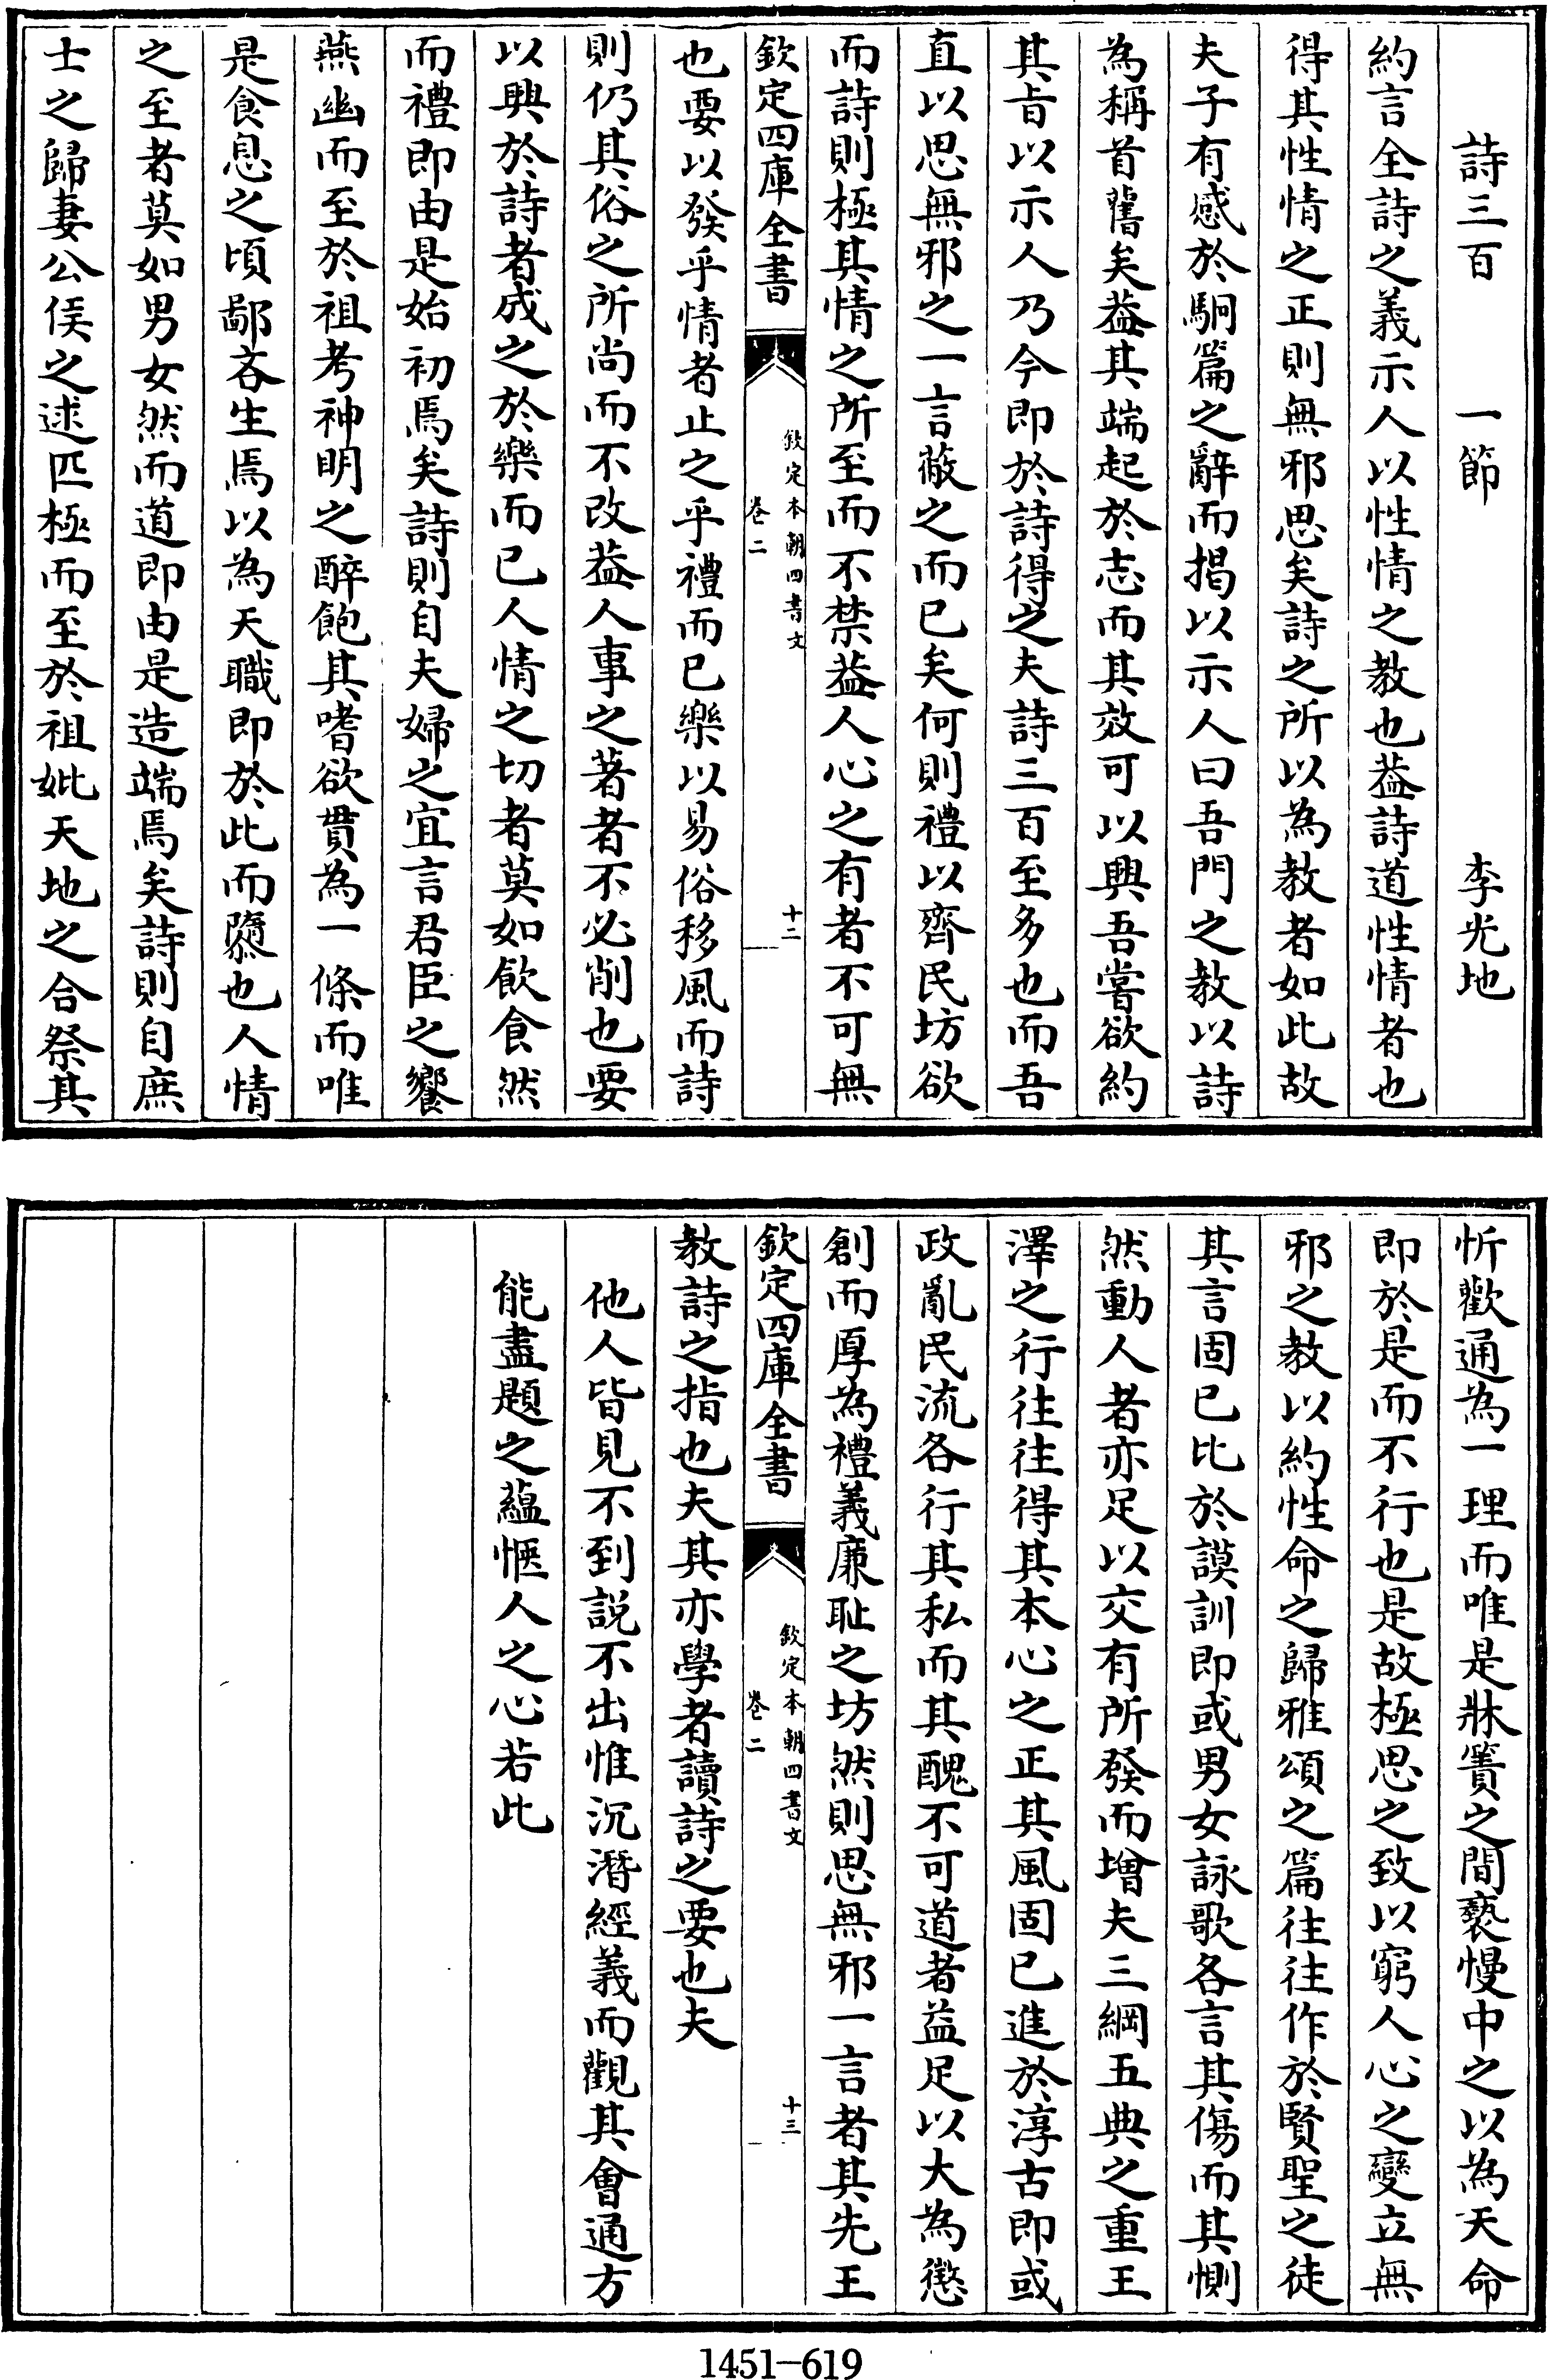 詩三百　一節　李光地
約言全詩之義示人以性情之教也葢詩道性情者也
得其性情之正則無邪思矣詩之所以為教者如此故
夫子有感於駉篇之辭而揭以示人曰吾門之教以詩
為稱首舊矣葢其端起於志而其效可以興吾嘗欲約
其旨以示人乃今即於詩得之夫詩三百至多也而吾
直以思無邪之一言蔽之而已矣何則禮以齊民坊欲
而詩則極其情之所至而不禁葢人心之有者不可無
欽定四庫全書
欽定本朝四書文
卷二
十二
也要以發乎情者止之乎禮而已樂以易俗移風而詩
則仍其俗之所尚而不改葢人事之著者不必削也要
以興於詩者成之於樂而已人情之切者莫如飲食然
而禮即由是始初焉矣詩則自夫婦之宜言君臣之饗
燕幽而至於祖考神明之醉飽其嗜欲貫為一條而唯
是食息之頃鄙吝生焉以為天職即於此而隳也人情
之至者莫如男女然而道即由是造端焉矣詩則自庶
士之歸妻公侯之逑匹極而至於祖妣天地之合祭其
忻歡通為一理而唯是牀簀之間褻慢中之以為天命
即於是而不行也是故極思之致以窮人心之變立無
邪之教以約性命之歸雅頌之篇往往作於賢聖之徒
其言固已比於謨訓即或男女詠歌各言其傷而其惻
然動人者亦足以交有所發而增夫三綱五典之重王
澤之行往往得其本心之正其風固已進於淳古即或
政亂民流各行其私而其醜不可道者益足以大為懲
創而厚為禮義廉耻之坊然則思無邪一言者其先王
欽定四庫全書
欽定本朝四書文
卷二
十三
教詩之指也夫其亦學者讀詩之要也夫
他人皆見不到説不出惟沉潛經義而觀其會通方
能盡題之蘊愜人之心若此
1451-619